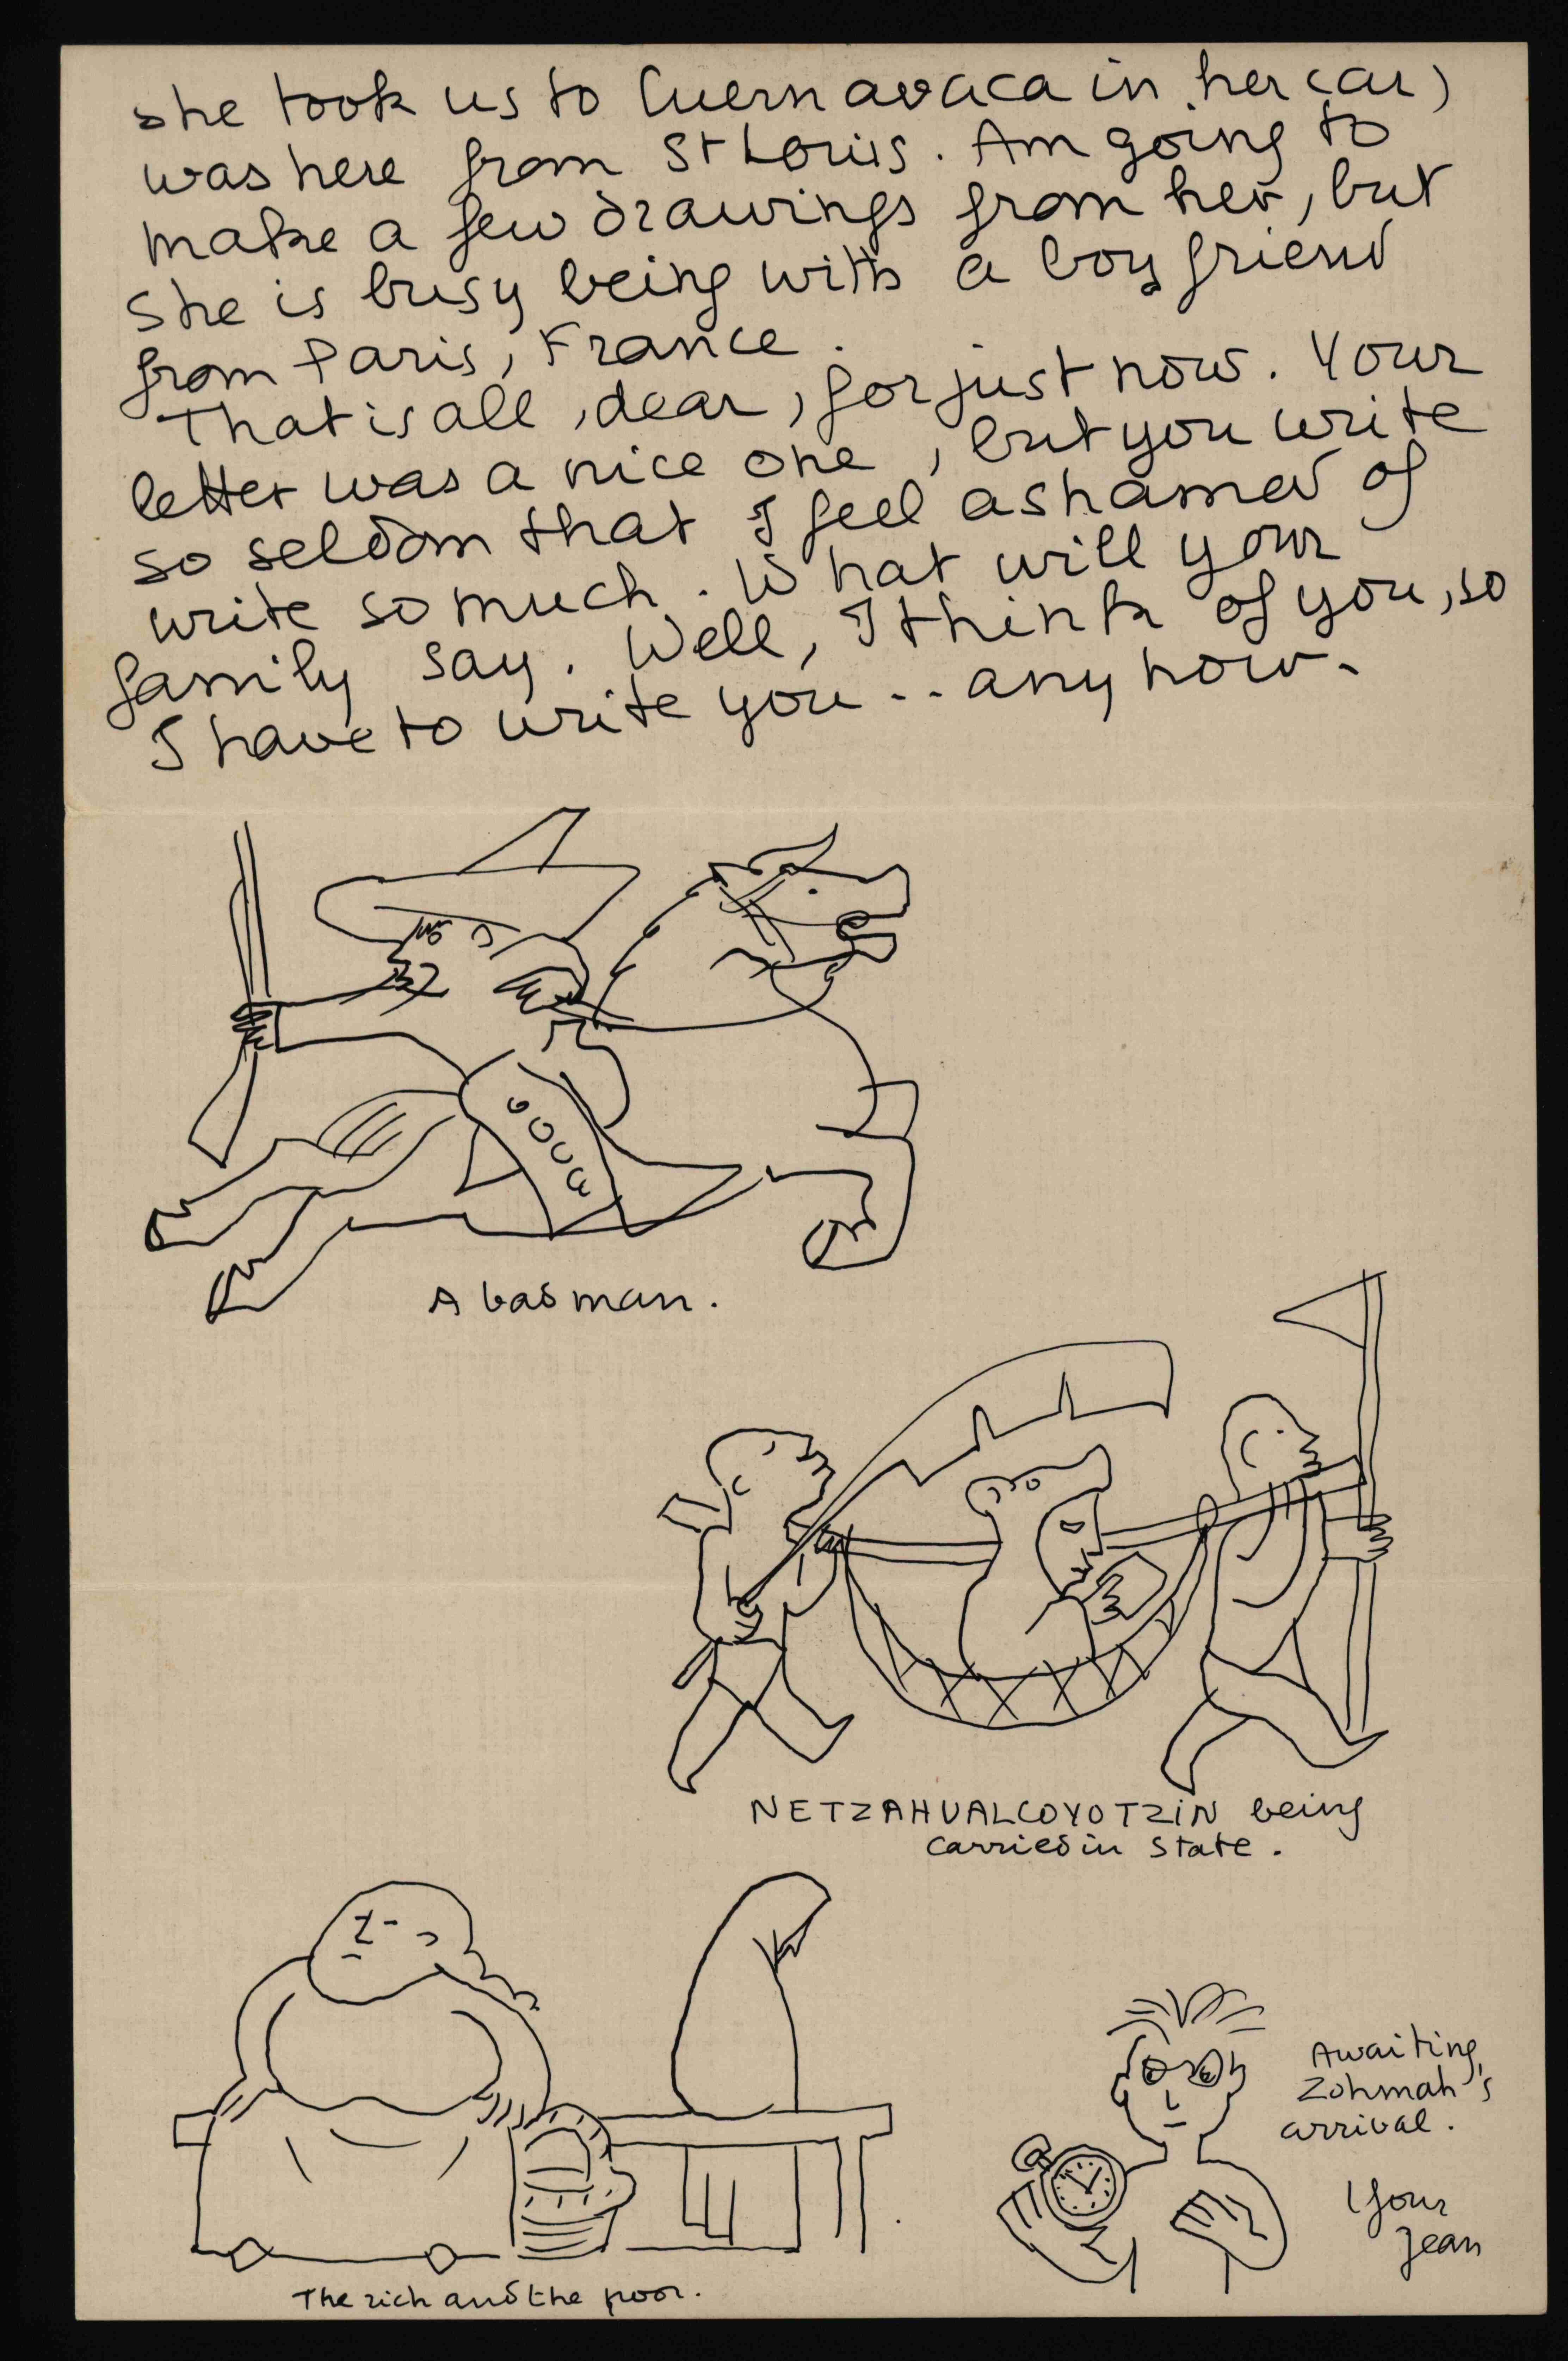 she took us to Cuernavaca in her car)
was here from St Louis. Am going to
make a few drawings from her, but
She is busy being with a boy friend
from Paris, France.
That is all, dear, for just now. Your
letter was a nice one, but you write
so seldom that I feel ashamed of
write so much. What will your
family say. Well, I think of you, so
I have to write you -- any how.
A bad man.
NETZAHUALCOYOTZIN being
carried in state.
The rich and the poor.
Awaiting
Zohmah's
arrival.
Your
Jean